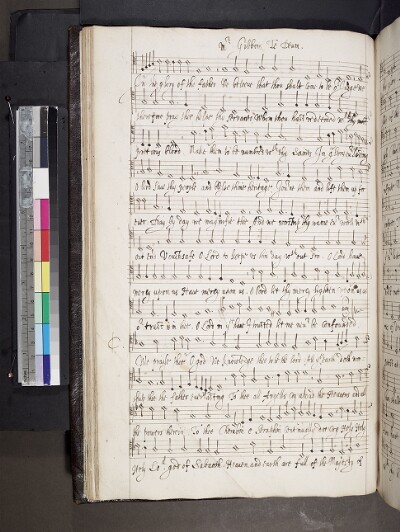 Mr Gibbons Te Deum.
In the glory of the father We believe that thou shalt come to be our Judge we
therefore pray thee helpe thy servants whom thou hast redeemed with thy most
pretious blood. Make them to be numbred with thy Saints In glory everlasting
O lord save thy people and blesse thine heritage Governe them and lift them up for
ever Day by day we magnifie thee And we worship thy name ever world without
out end Vouchsafe O Lord to keepe us this day without sin. O Lord have
mercy upon us Have mercy upon us. O Lord let thy mercy lighten upon us as
trust is in thee. O Lord in thee have I trusted let me never be confounded.
We praise thee O god We knowledge thee to be the lord All the earth doth wor
ship thee the father everlasting To thee all Angels cry aloud the Heavens and all
the powers therein To thee Cherubin & Seraphin Continually doe cry Holy Holy
Holy Lord god of Sabaoth Heaven and earth are full of the Majesty of